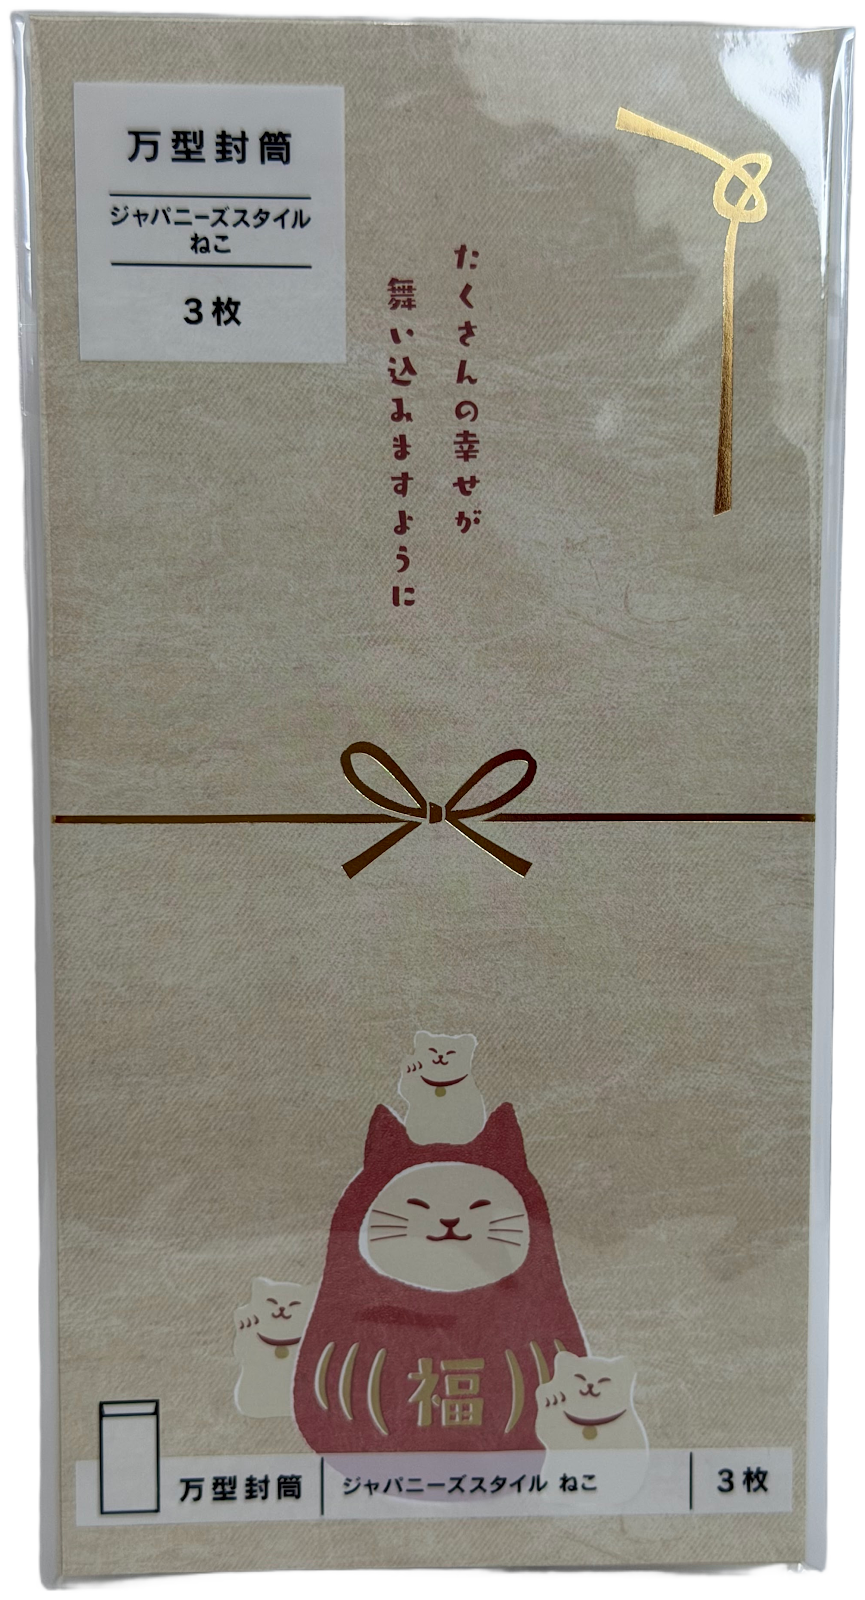 万型封筒
ジャパニーズスタイル
ねこ
3枚
たくさんの幸せが
舞い込みますように
福
万型封筒
ジャパニーズスタイル ねこ
3枚